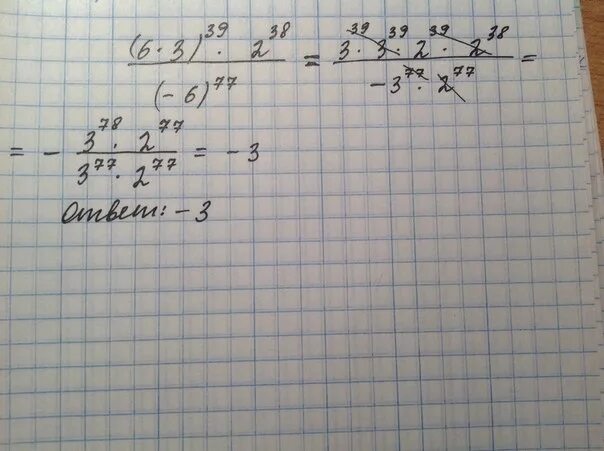 (6·3)³⁹·2³⁸ / (-6)⁷⁷ = 3³⁹·3³⁹·2³⁹·2³⁸ / -3⁷⁷·2⁷⁷ =
= - 3⁷⁸·2⁷⁷ / 3⁷⁷·2⁷⁷ = -3
Ответ: -3